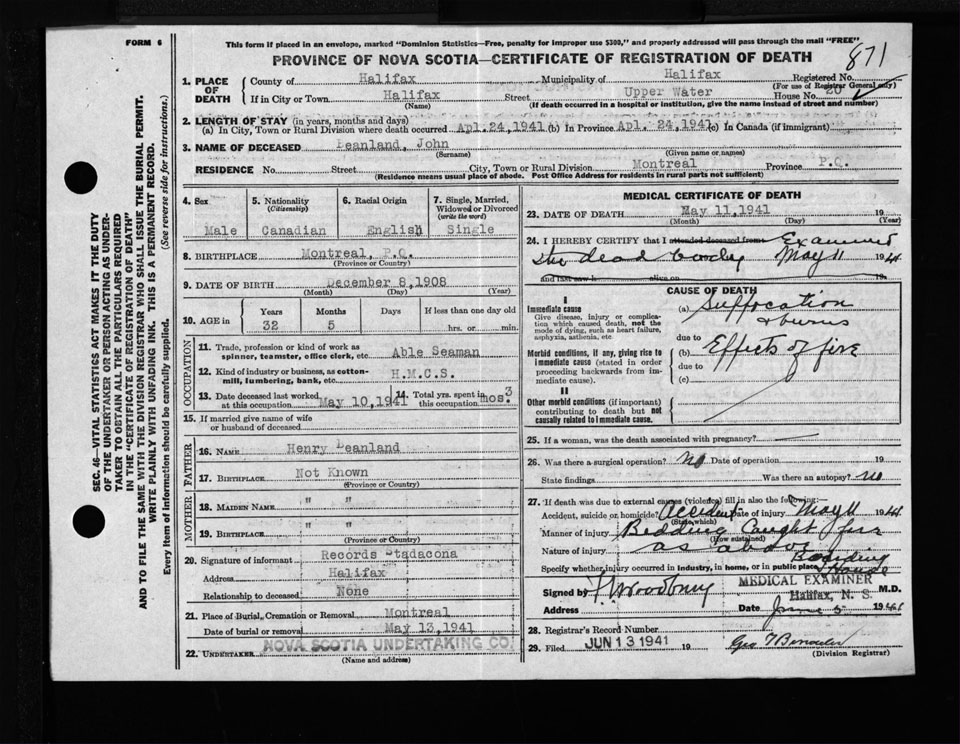 FORM 6
This form if placed in an envelope, marked "Dominion Statistics—Free, penalty for improper use $300," and properly addressed will pass through the mail "FREE"
PROVINCE OF NOVA SCOTIA—CERTIFICATE OF REGISTRATION OF DEATH
871
1. PLACE OF DEATH
County of Halifax Municipality of Halifax Registered No.
(For use of Registrar General only)
If in City or Town Halifax Street Upper Water House No. 20
(Name) (If death occurred in a hospital or institution, give the name instead of street and number)
2. LENGTH OF STAY (in years, months and days)
(a) In City, Town or Rural Division where death occurred Apl.24,1941 (b) In Province Apl. 24,1941 (c) In Canada (if immigrant)
3. NAME OF DECEASED Leanland, John
(Surname) (Given name or names)
RESIDENCE No. Street City, Town or Rural Division Montreal Province P.Q.
(Residence means usual place of abode. Post Office Address for residents in rural parts not sufficient)
4. Sex
Male
5. Nationality
(Citizenship)
Canadian
6. Racial Origin
English
7. Single, Married, Widowed or Divorced
(write the word)
Single
8. BIRTHPLACE Montreal, P.Q.
(Province or Country)
9. DATE OF BIRTH December 8,1908
(Month) (Day) (Year)
10. AGE in
Years Months Days If less than one day old
32 5 hrs. or min.
OCCUPATION
11. Trade, profession or kind of work as
spinner, teamster, office clerk, etc. Able Seaman
12. Kind of industry or business, as cotton-
mill, lumbering, bank, etc. H.M.C.S.
13. Date deceased last worked
at this occupation May 10,1941
14. Total yrs. spent in
this occupation 3 mos.
15. If married give name of wife
or husband of deceased
FATHER
16. NAME Henry Leanland
17. BIRTHPLACE Not Known
(Province or Country)
MOTHER
18. MAIDEN NAME " "
19. BIRTHPLACE " "
(Province or Country)
20. Signature of informant Records Stadacona
Address Halifax
Relationship to deceased None
21. Place of Burial, Cremation or Removal Montreal
Date of burial or removal May 13,1941
22. UNDERTAKER NOVA SCOTIA UNDERTAKING CO.
(Name and address)
MEDICAL CERTIFICATE OF DEATH
23. DATE OF DEATH May 11,1941 19
(Month) (Day) (Year)
24. I HEREBY CERTIFY that I attended deceased from Examined
the dead body May 11 1941
and last saw h alive on 19
CAUSE OF DEATH
I
Immediate cause
Give disease, injury or complica-
tion which caused death, not the
mode of dying, such as heart failure,
asphyxia, asthenia, etc
(a) Suffocation
& burns
due to
Morbid conditions, if any, giving rise to
immediate cause (stated in order
proceeding backwards from im-
mediate cause).
(b) Effects of fire
due to
(c)
II
Other morbid conditions (if important)
contributing to death but not
causally related to immediate cause.
25. If a woman, was the death associated with pregnancy?
26. Was there a surgical operation? no Date of operation 19
State findings Was there an autopsy? no
27. If death was due to external causes (violence) fill in also the following:—
Accident, suicide or homicide? Accident Date of injury May 11 1941
(State which)
Manner of injury Bedding Caught fire
(How sustained)
Nature of injury as above
Specify whether injury occurred in industry, in home, or in public place Boarding House
Signed by Woodbury M.D.
MEDICAL EXAMINER
Halifax, N. S.
Address Date June 5 1941
28. Registrar's Record Number
29. Filed JUN 13 1941 19
(Division Registrar)
SEC. 46—VITAL STATISTICS ACT MAKES IT THE DUTY
OF THE UNDERTAKER OR PERSON ACTING AS UNDER-
TAKER TO OBTAIN ALL THE PARTICULARS REQUIRED
IN THE "CERTIFICATE OF REGISTRATION OF DEATH"
AND TO FILE THE SAME WITH THE DIVISION REGISTRAR WHO SHALL ISSUE THE BURIAL PERMIT.
WRITE PLAINLY WITH UNFADING INK. THIS IS A PERMANENT RECORD.
Every item of information should be carefully supplied. (See reverse side for instructions.)